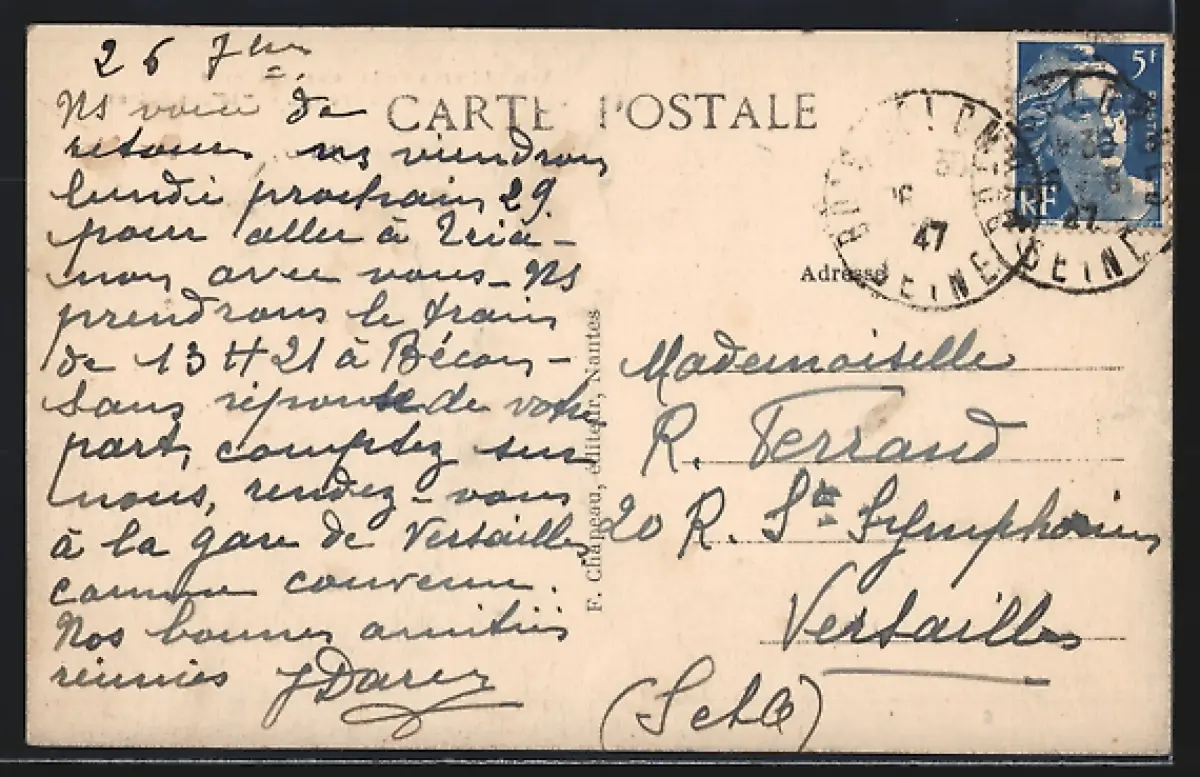 26 7bre
CARTE POSTALE
Ns voici de
retour ns viendrons
lundi prochain 29
pour aller à Tria-
non avec vous_ Ns
prendrons le train
de 13 H 21 à Bécon_
Sans réponse de votre
part, comptez sur
nous, rendez-vous
à la gare de Versailles
comme convenu.
Nos bonnes amitiés
réunies
F. Chapeau, éditeur, Nantes
5f
POSTES
RF
47
SEINE
47
SEINE
Adresse
Mademoiselle
R. Ferrand
20 R. St Symphorien
Versailles
(S et O)